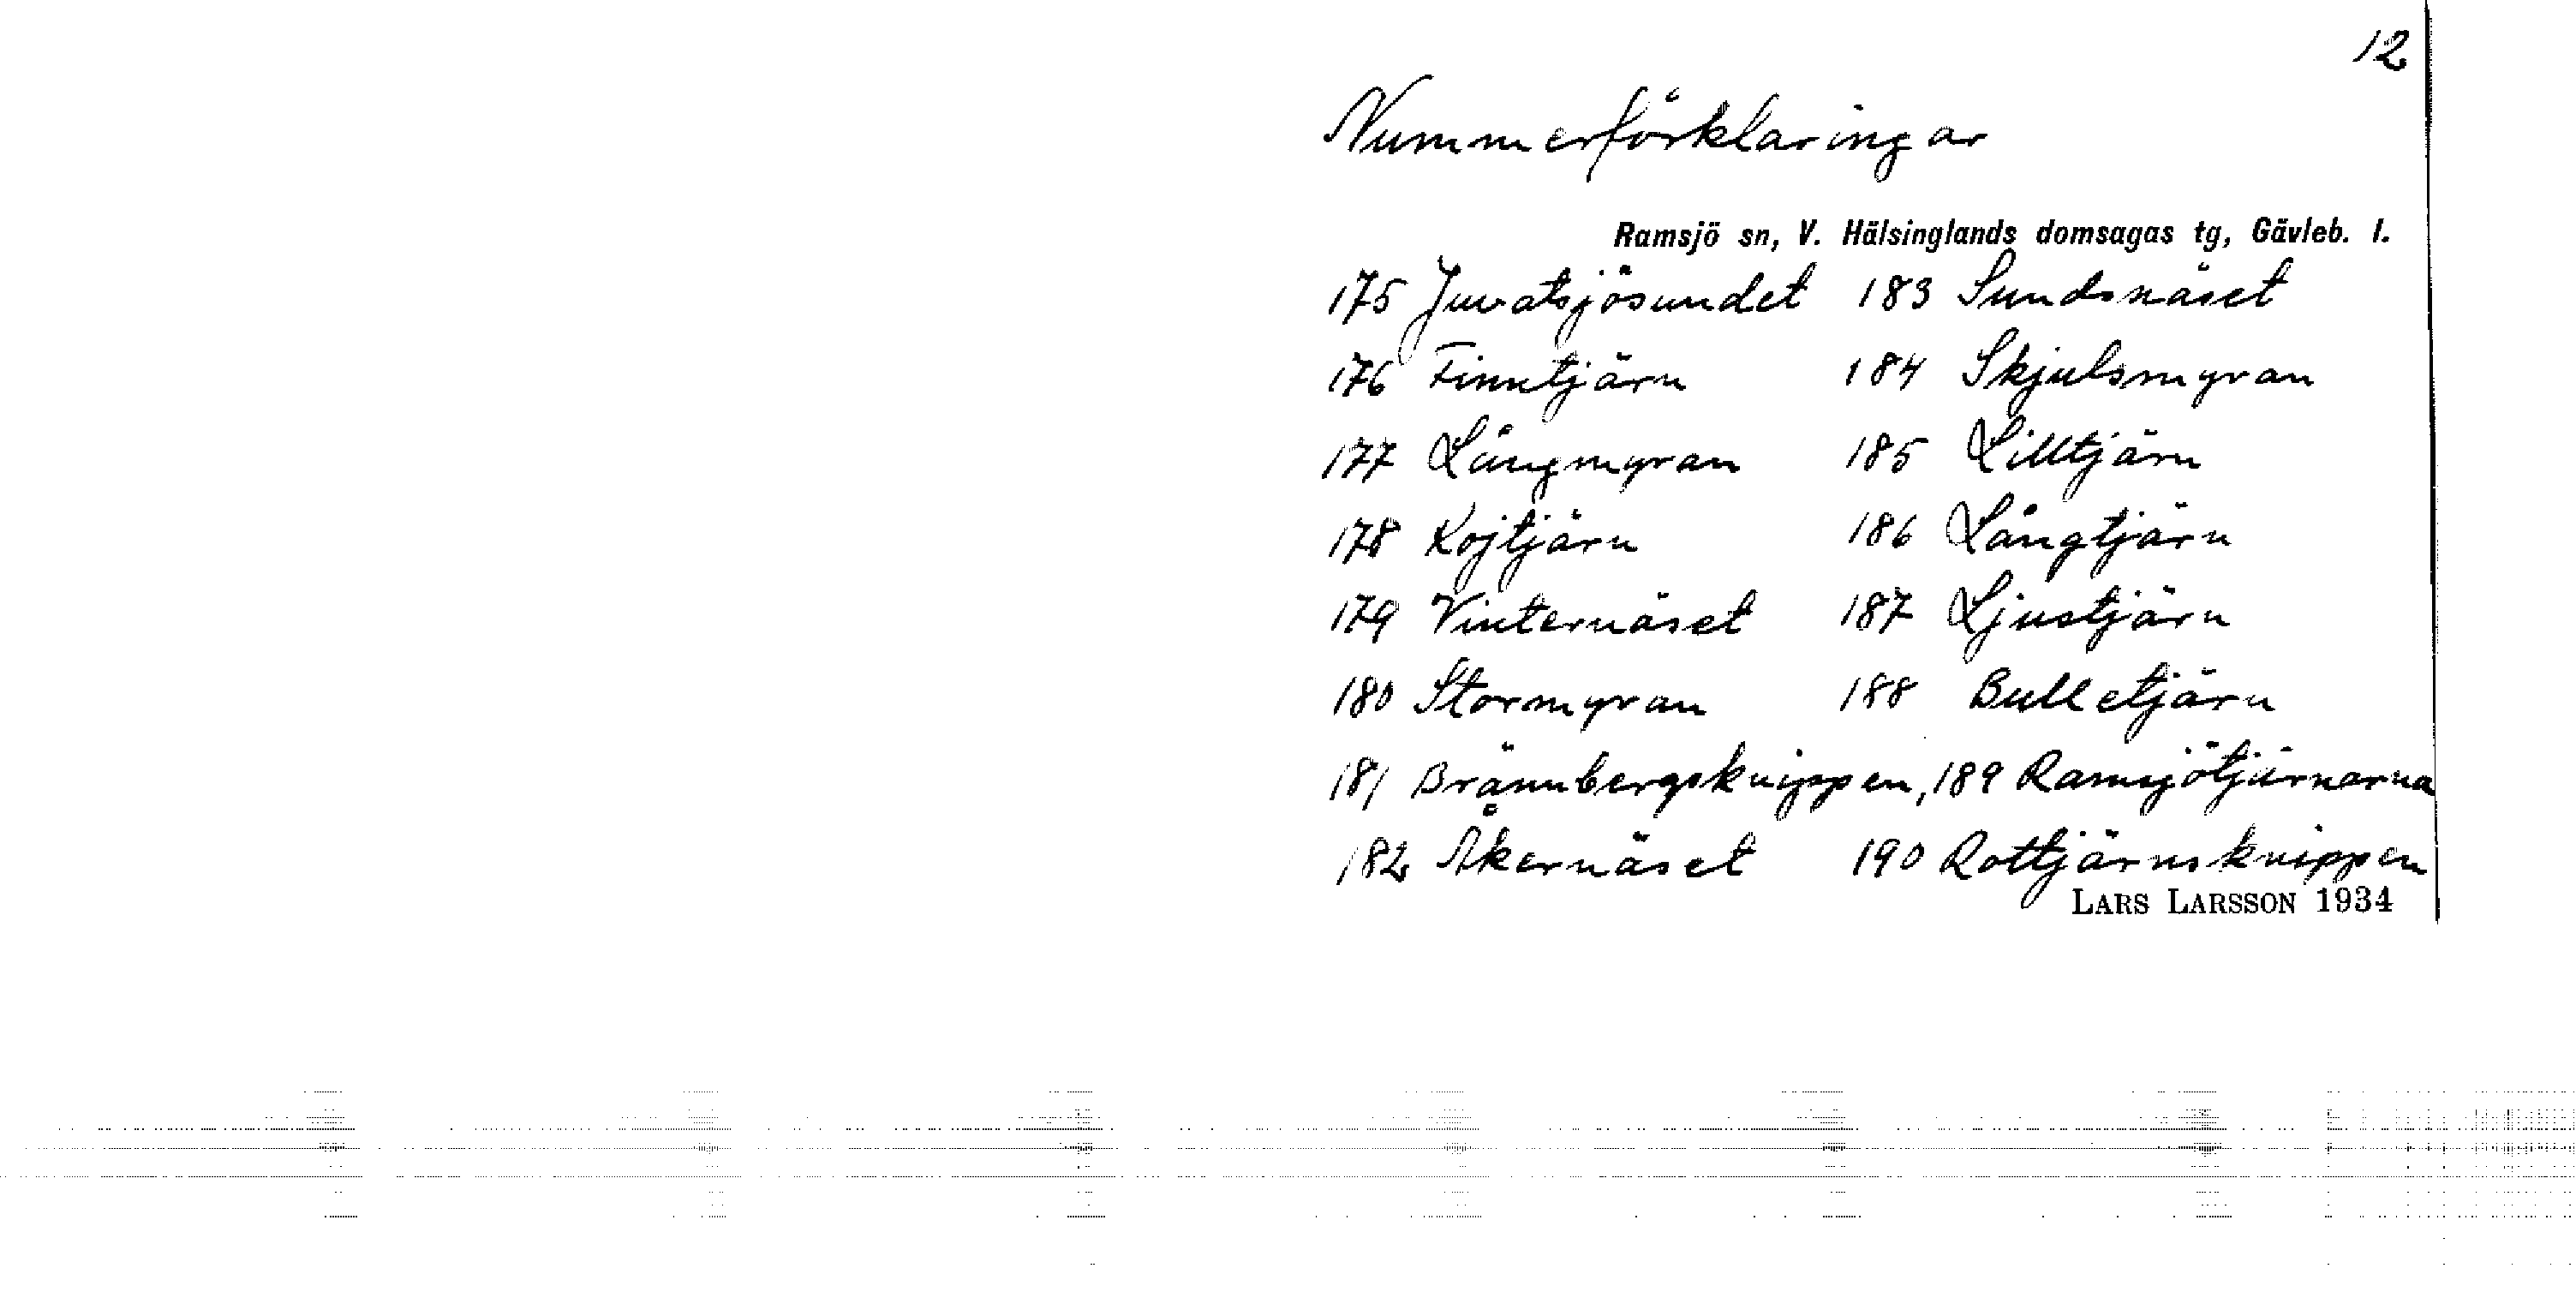 12
Nummerförklaringar
Ramsjö sn, V. Hälsinglands domsagas tg, Gävleb. l.
175 Juvatsjösundet 183 Sundsnäset
176 Finntjärn 184 Skjulsmyran
177 Långmyran 185 Lilltjärn
178 Kojtjärn 186 Långtjärn
179 Vinternäset 187 Ljustjärn
180 Stormyran 188 Bulletjärn
181 Brännbergsknippen, 189 Ramsjötjärnarna
182 Åkernäset 190 Rottjärnsknippen
LARS LARSSON 1934